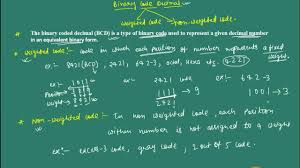 Binary Code Decimal
Weighted code Non-weighted code
* The binary coded decimal (BCD) is a type of binary code used to represent a given decimal number
in an equivalent binary form.
* Weighted code :- code in which each position of number represents a fixed
weight.
ex:- 8421(BCD), 2421, 6 4 2 -3,
ex:- 1111 2421 ex:- 6 4 2 -3
1111 → 9 1001 → 3
* Non-weighted code :- In Non weighted code, each position
within number is not assigned to a weight
ex:- excess-3 code, gray code, 2 out of 5 code.